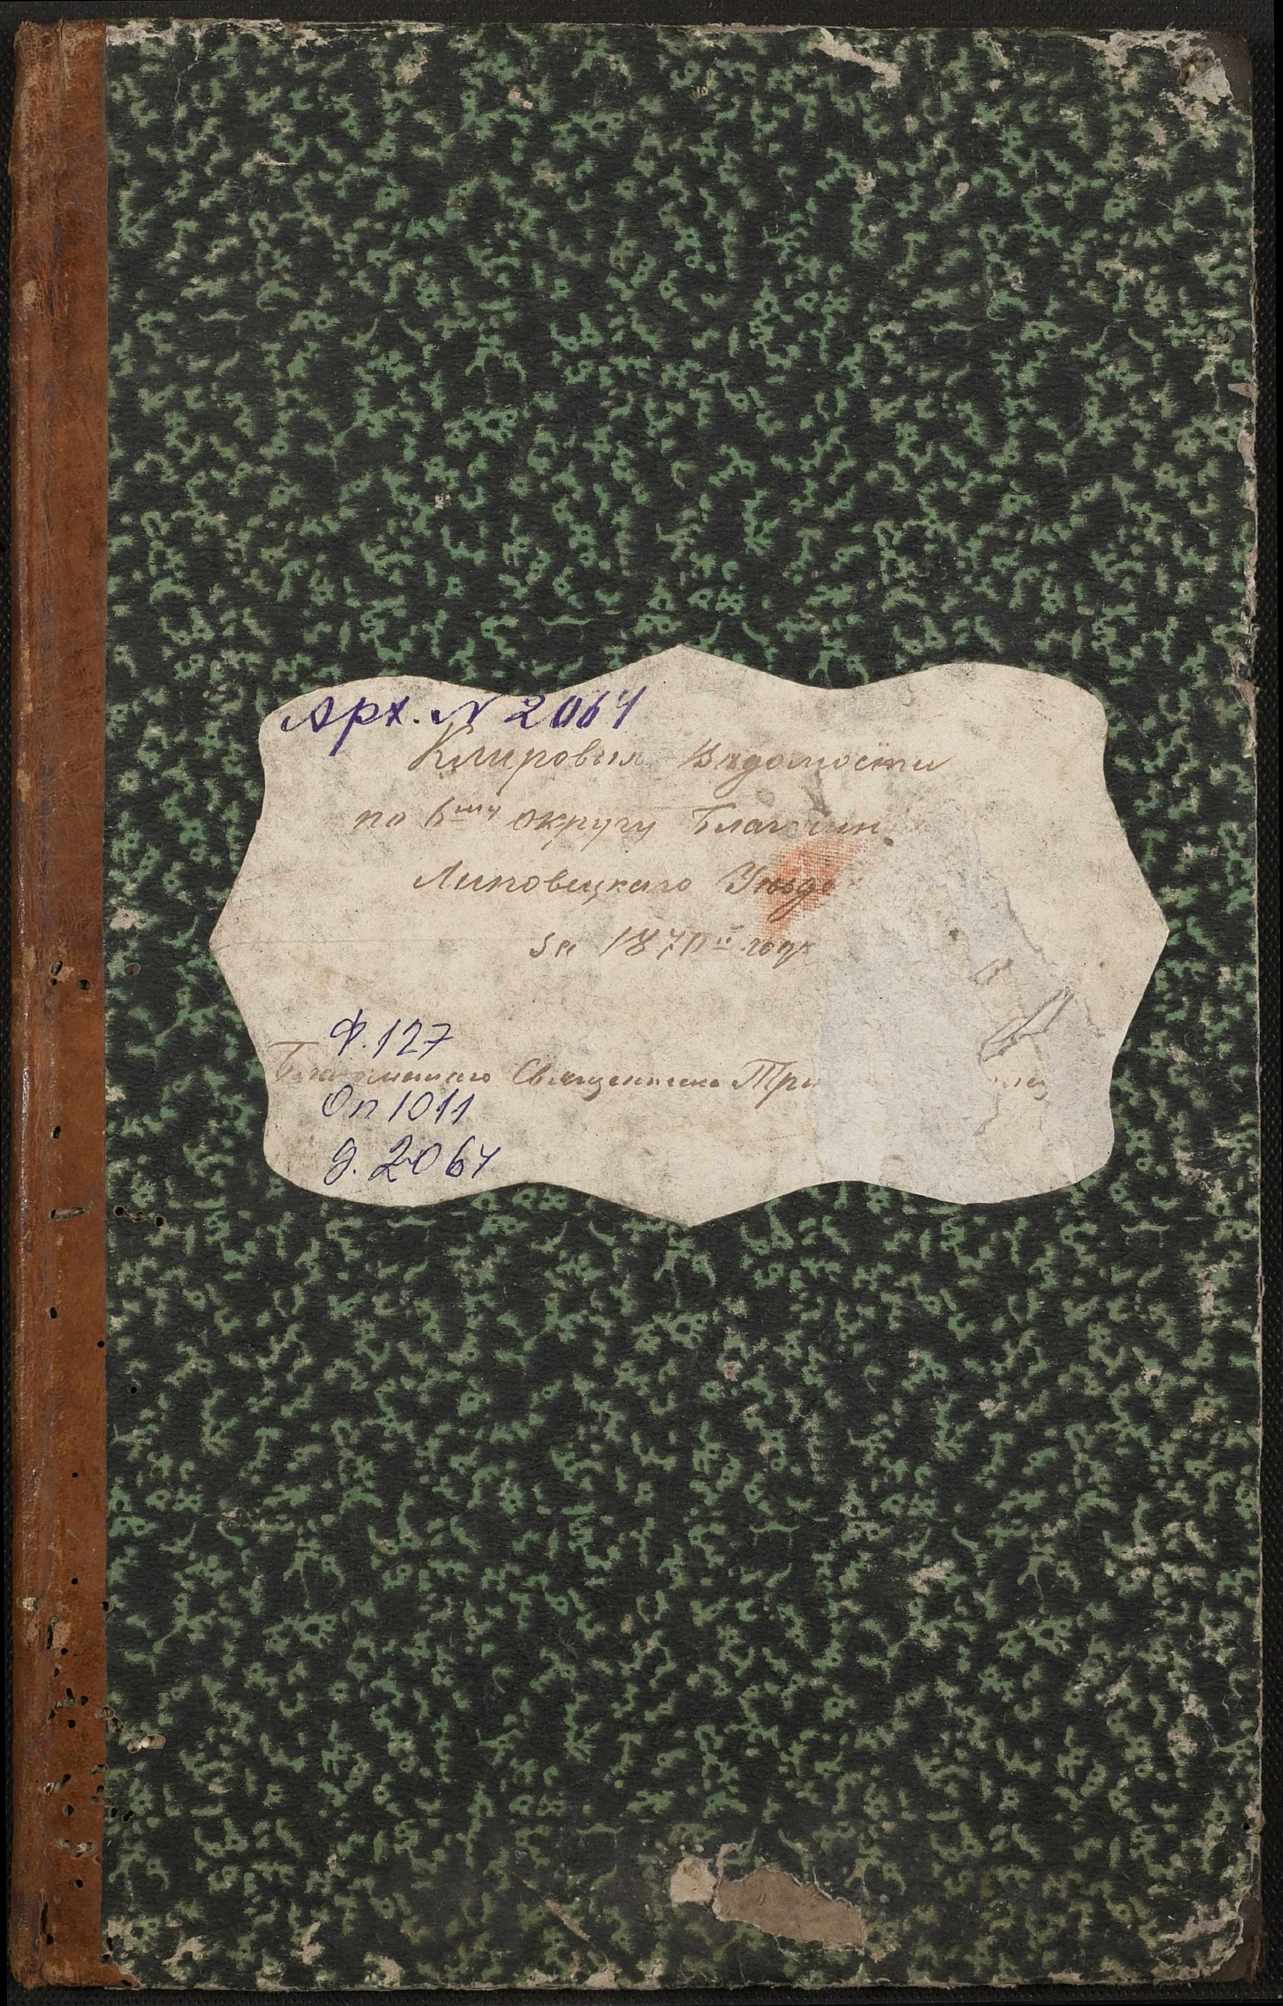 Арх. N 2064
Клировыя Вѣдомости
по 6му округу Благочин
Липовецкаго Уѣзда
за 1870й годъ
Ф. 127
Священника Три
Оп 1011
д. 2064